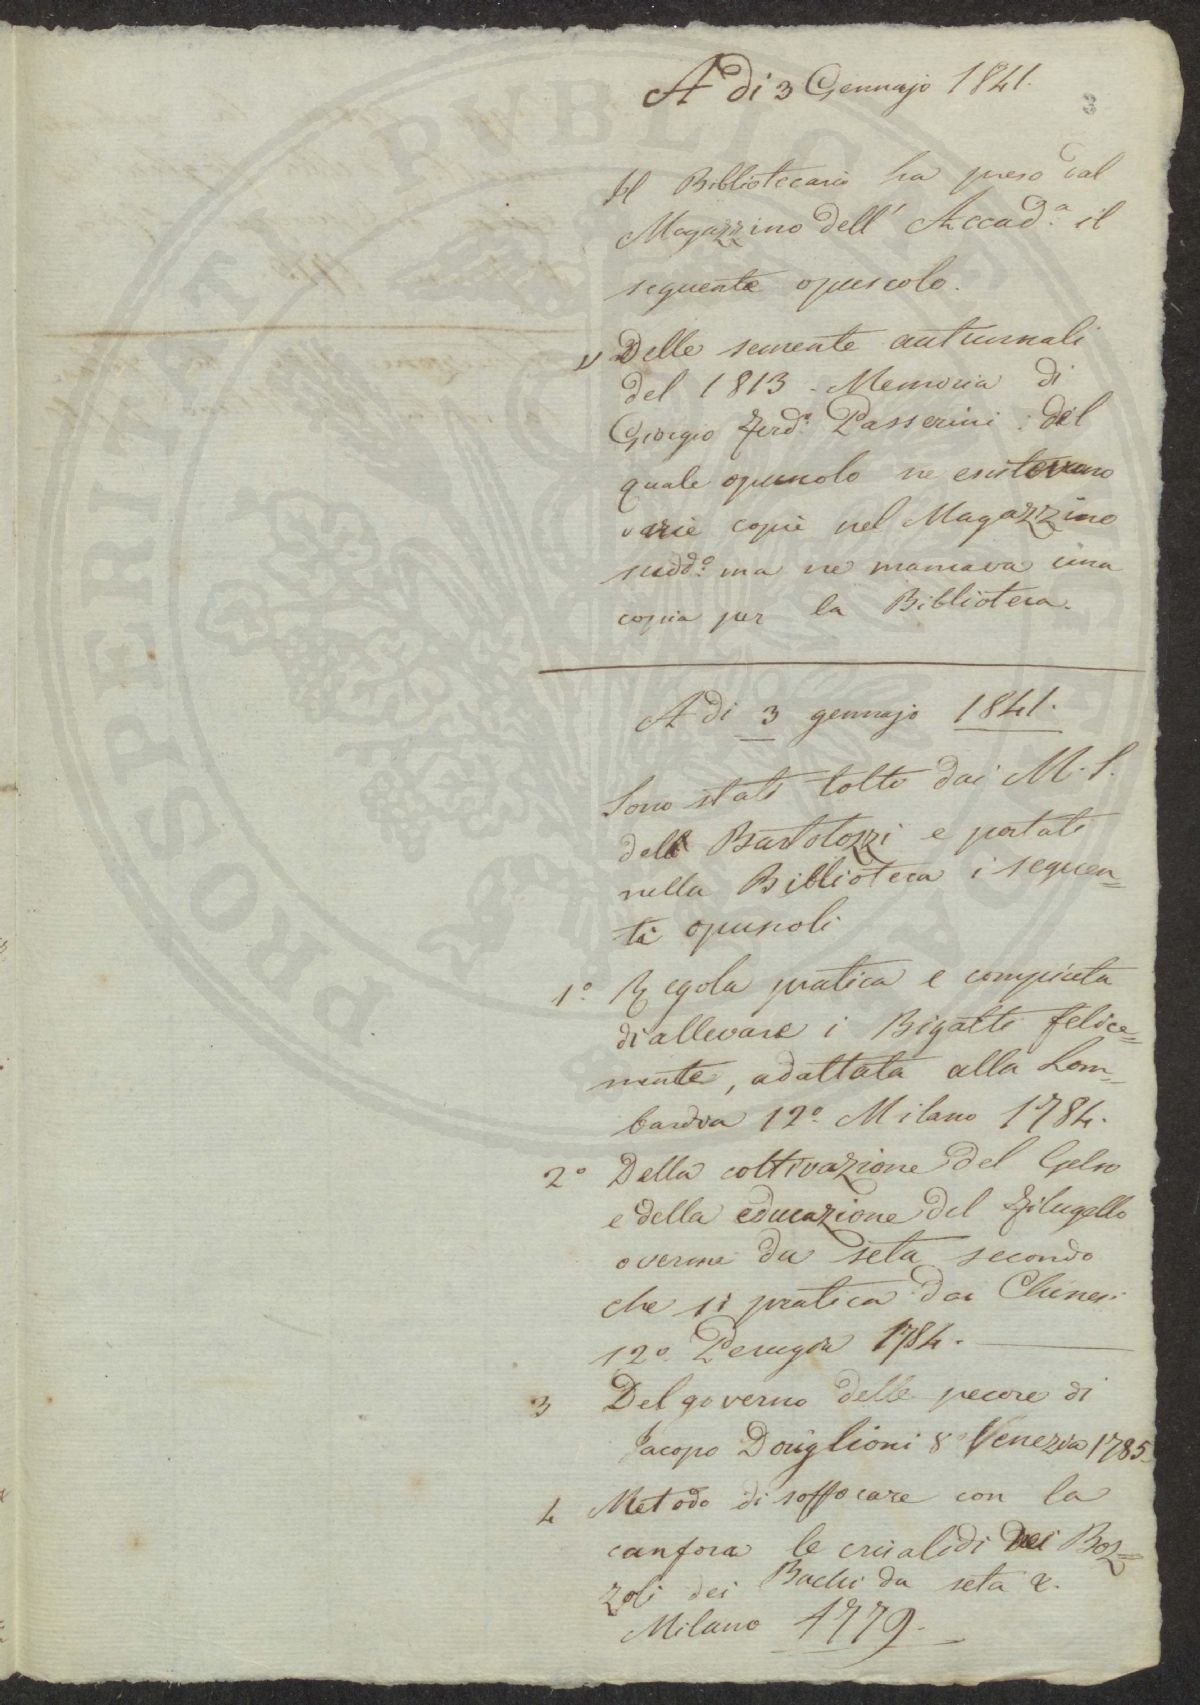 A di 3 Gennajo 1841.
3
Il Bibliotecario ha preso dal
Magazzino dell' Accad.a il
seguente opuscolo.
1 Delle semente autunnali
del 1813 - Memoria di
Giorgio Ferd.o Passerini: del
quale opuscolo ne esistevano
varie copie nel Magazzino
sudd.o ma ne mancava una
copia per la Biblioteca.
A di 3 gennajo 1841.
Sono stati tolti dai M.S.
del Bartolozzi e portati
nella Biblioteca i seguen=
ti opuscoli
1.o Regola pratica e compiuta
di allevare i Bigatti felice=
mente, adattata alla Lom=
bardia 12.o Milano 1784.
2.o Della coltivazione del Gelso
e della educazione del Filugello
o verme da seta secondo
che si pratica dai Chinesi
12.o Perugia 1784.
3 Del governo delle pecore di
Jacopo Douglioni 8.o Venezia 1785.
4 Metodo di soffocare con la
canfora le crisalidi dei Boz=
zoli dei Bachi da seta &.
Milano 1779.
PUBLICAE
PROSPERITATI